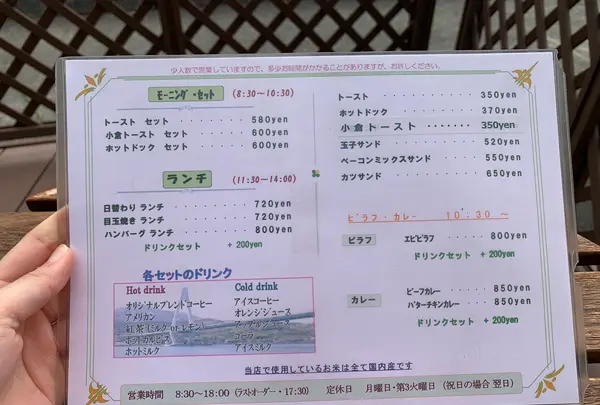 少人数で営業していますので、多少お時間がかかることがありますが、お許しください。
モーニング・セット (8:30~10:30)
トースト セット ・・・・・・・ 580yen
小倉トースト セット ・・・・ 600yen
ホットドック セット ・・・・ 600yen
ランチ (11:30~14:00)
日替わり ランチ ・・・・・・ 720yen
目玉焼き ランチ ・・・・・・ 720yen
ハンバーグ ランチ ・・・・・ 800yen
ドリンクセット + 200yen
各セットのドリンク
Hot drink
オリジナルブレントコーヒー
アメリカン
紅茶(ミルク or レモン)
ホットカルピス
ホットミルク
Cold drink
アイスコーヒー
オレンジジュース
コーラ
アイスミルク
トースト ・・・・・・・・・・ 350yen
ホットドック ・・・・・・・・ 370yen
小倉トースト・・・・・・・ 350yen
玉子サンド ・・・・・・・・・ 520yen
ベーコンミックスサンド ・・・・ 550yen
カツサンド ・・・・・・・・・ 650yen
ピラフ・カレー 10:30~
ピラフ エビピラフ ・・・・・・ 800yen
ドリンクセット + 200yen
カレー
ビーフカレー ・・・・・・・・ 850yen
バターチキンカレー・・・・・・ 850yen
ドリンクセット + 200yen
当店で使用しているお米は全て国内産です
営業時間 8:30~18:00 (ラストオーダー・17:30) 定休日 月曜日・第3火曜日 (祝日の場合 翌日)